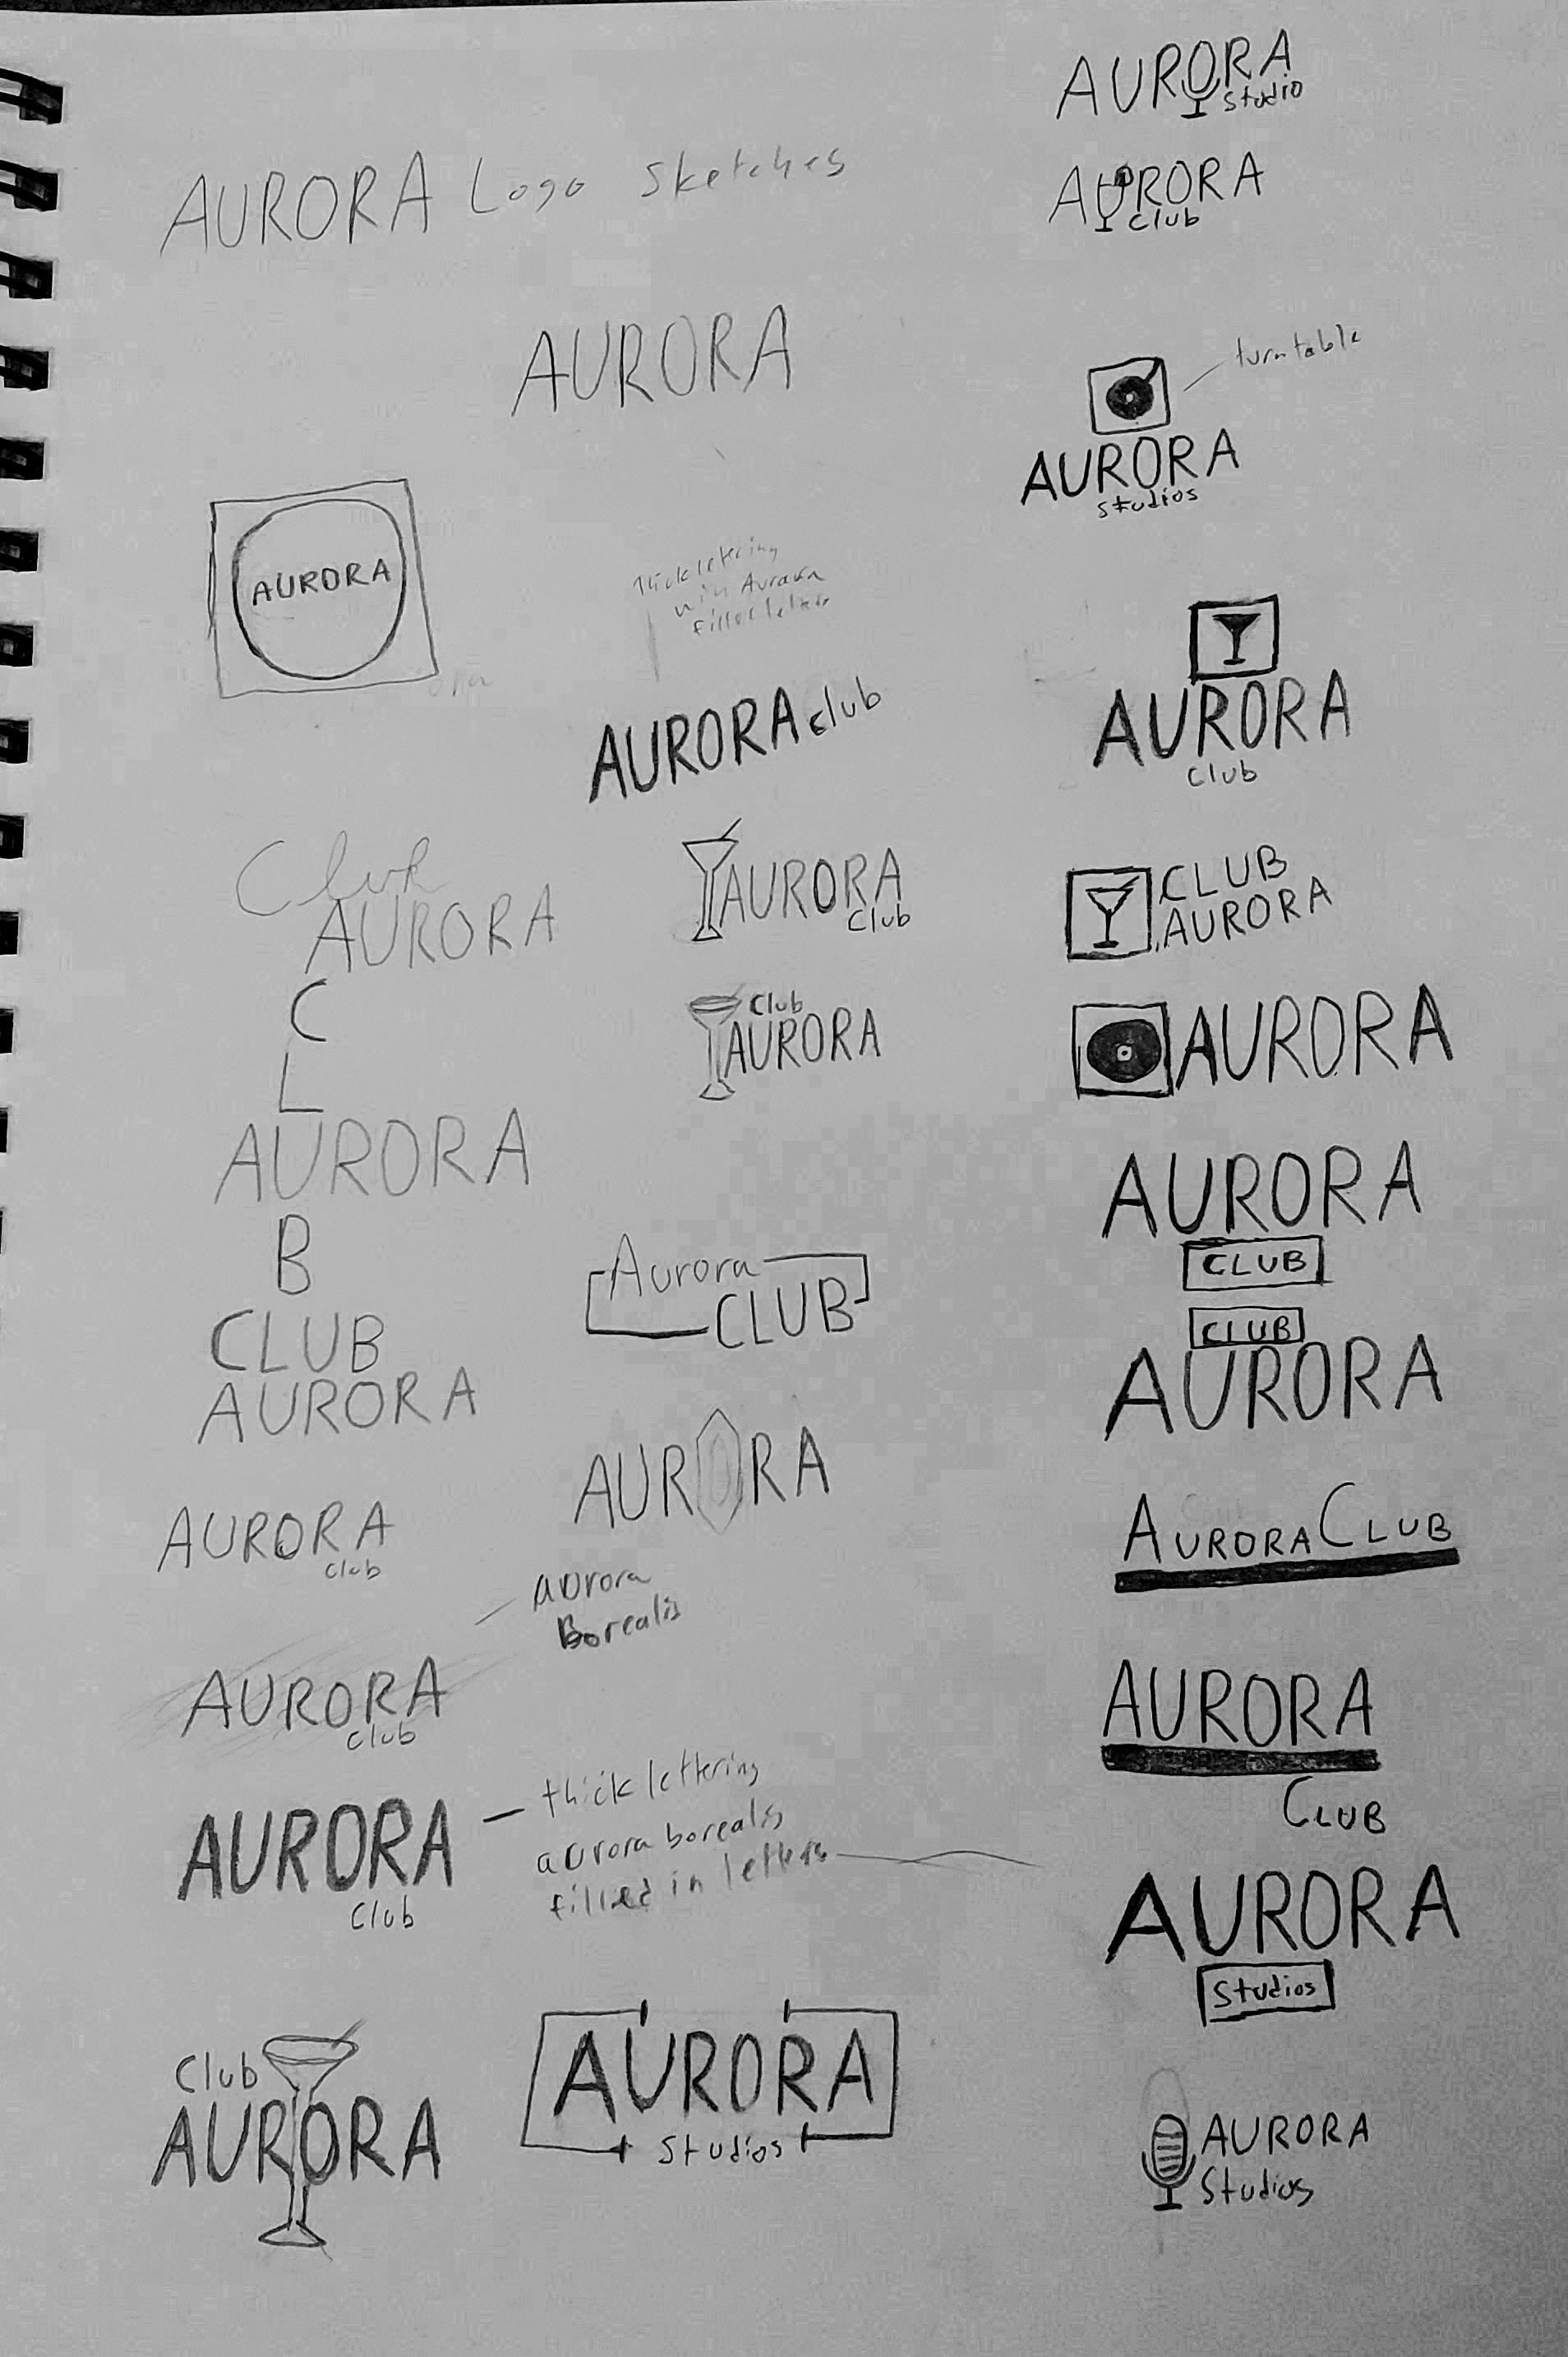 AURORA Logo Sketches
AURORA
AURORA
Club
AURORA
C
L
AURORA
B
CLUB
AURORA
AURORA
Club
aurora
Borealis
AURORA
Club
AURORA
Club
thick lettering
aurora borealis
filled in letters
Club
AURORA
thick lettering
Aurora
letters
AURORA club
AURORA
Club
Club
AURORA
Aurora
CLUB
AURORA
AURORA
Studios
AURORA
Studio
AURORA
Club
turntable
AURORA
Studios
AURORA
Club
CLUB
AURORA
AURORA
AURORA
CLUB
CLUB
AURORA
AURORA CLUB
AURORA
CLUB
AURORA
Studios
AURORA
Studios